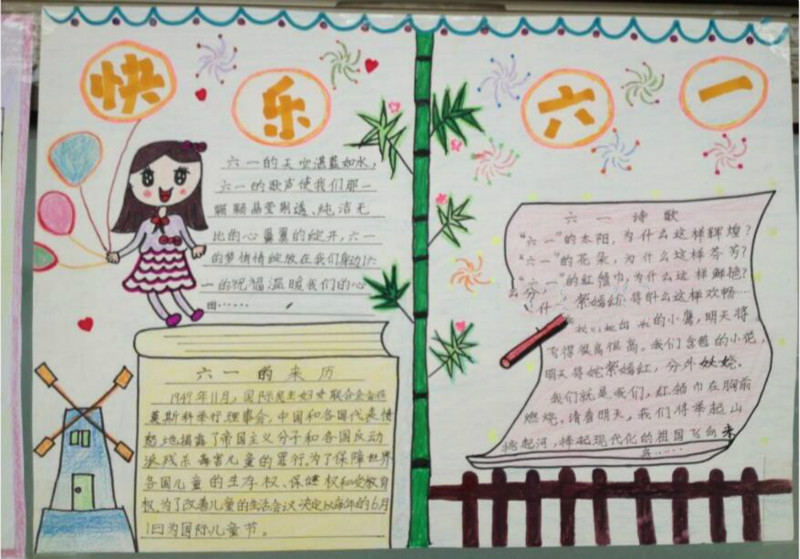 快乐六一
六一的天空湛蓝如水，
六一的歌声使我们那一
颗颗晶莹剔透、纯洁无
比的心量量的绽开，六一
的梦悄悄绽放在我们身边六
一的祝福温暖我们的心
田……
六一的来历
1949年11月，国际民主妇女联合会在
莫斯科举行理事会，中国和各国代表愤
怒地揭露了帝国主义分子和各国反动
派残杀毒害儿童的罪行。为了保障世界
各国儿童的生存权、保健权和受教育
权，为了改善儿童的生活会议决定以每年的6月
1日为国际儿童节。
六一诗歌
“六一”的太阳，为什么这样辉煌？
“六一”的花朵，为什么这样芬芳？
“六一”的红领巾，为什么这样鲜艳？
的小鹰，明天将
飞得很高很高。我们含苞的小花，
明天将姹紫嫣红，分外妖娆。
我们就是我们，红领巾在胸前
燃烧，请看明天，我们将举起山
捧起河，捧起现代化的祖国飞向未
来……